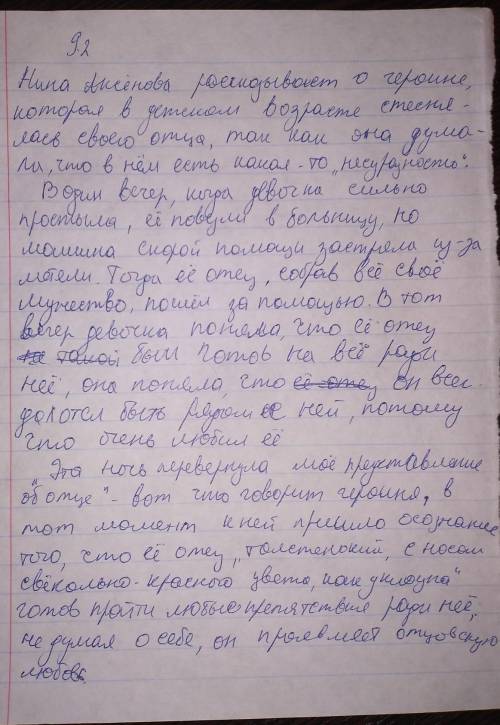 9.2
Нина Аксёнова рассказывает о героине,
которая в детском возрасте стесня-
лась своего отца, так как она дума-
ла, что в нём есть какая-то „несуразность".
В один вечер, когда девочка сильно
простыла, её повезли в больницу, но
машина скорой помощи застряла из-за
метели. Тогда её отец, собрав всё своё
мужество, пошёл за помощью. В тот
вечер девочка поняла, что её отец
такой был готов на всё ради
неё, она поняла, что её отец он всег
да хотел быть рядом с ней, потому
что очень любил её
„Эта ночь перевернула моё представление
об отце" - вот что говорит героиня, в
тот момент к ней пришло осознание
того, что её отец „толстенький, с носом
свёкольно-красного цвета, как у клоуна"
готов пройти любые препятствия ради неё,
не думая о себе, он проявляет отцовскую
любовь.